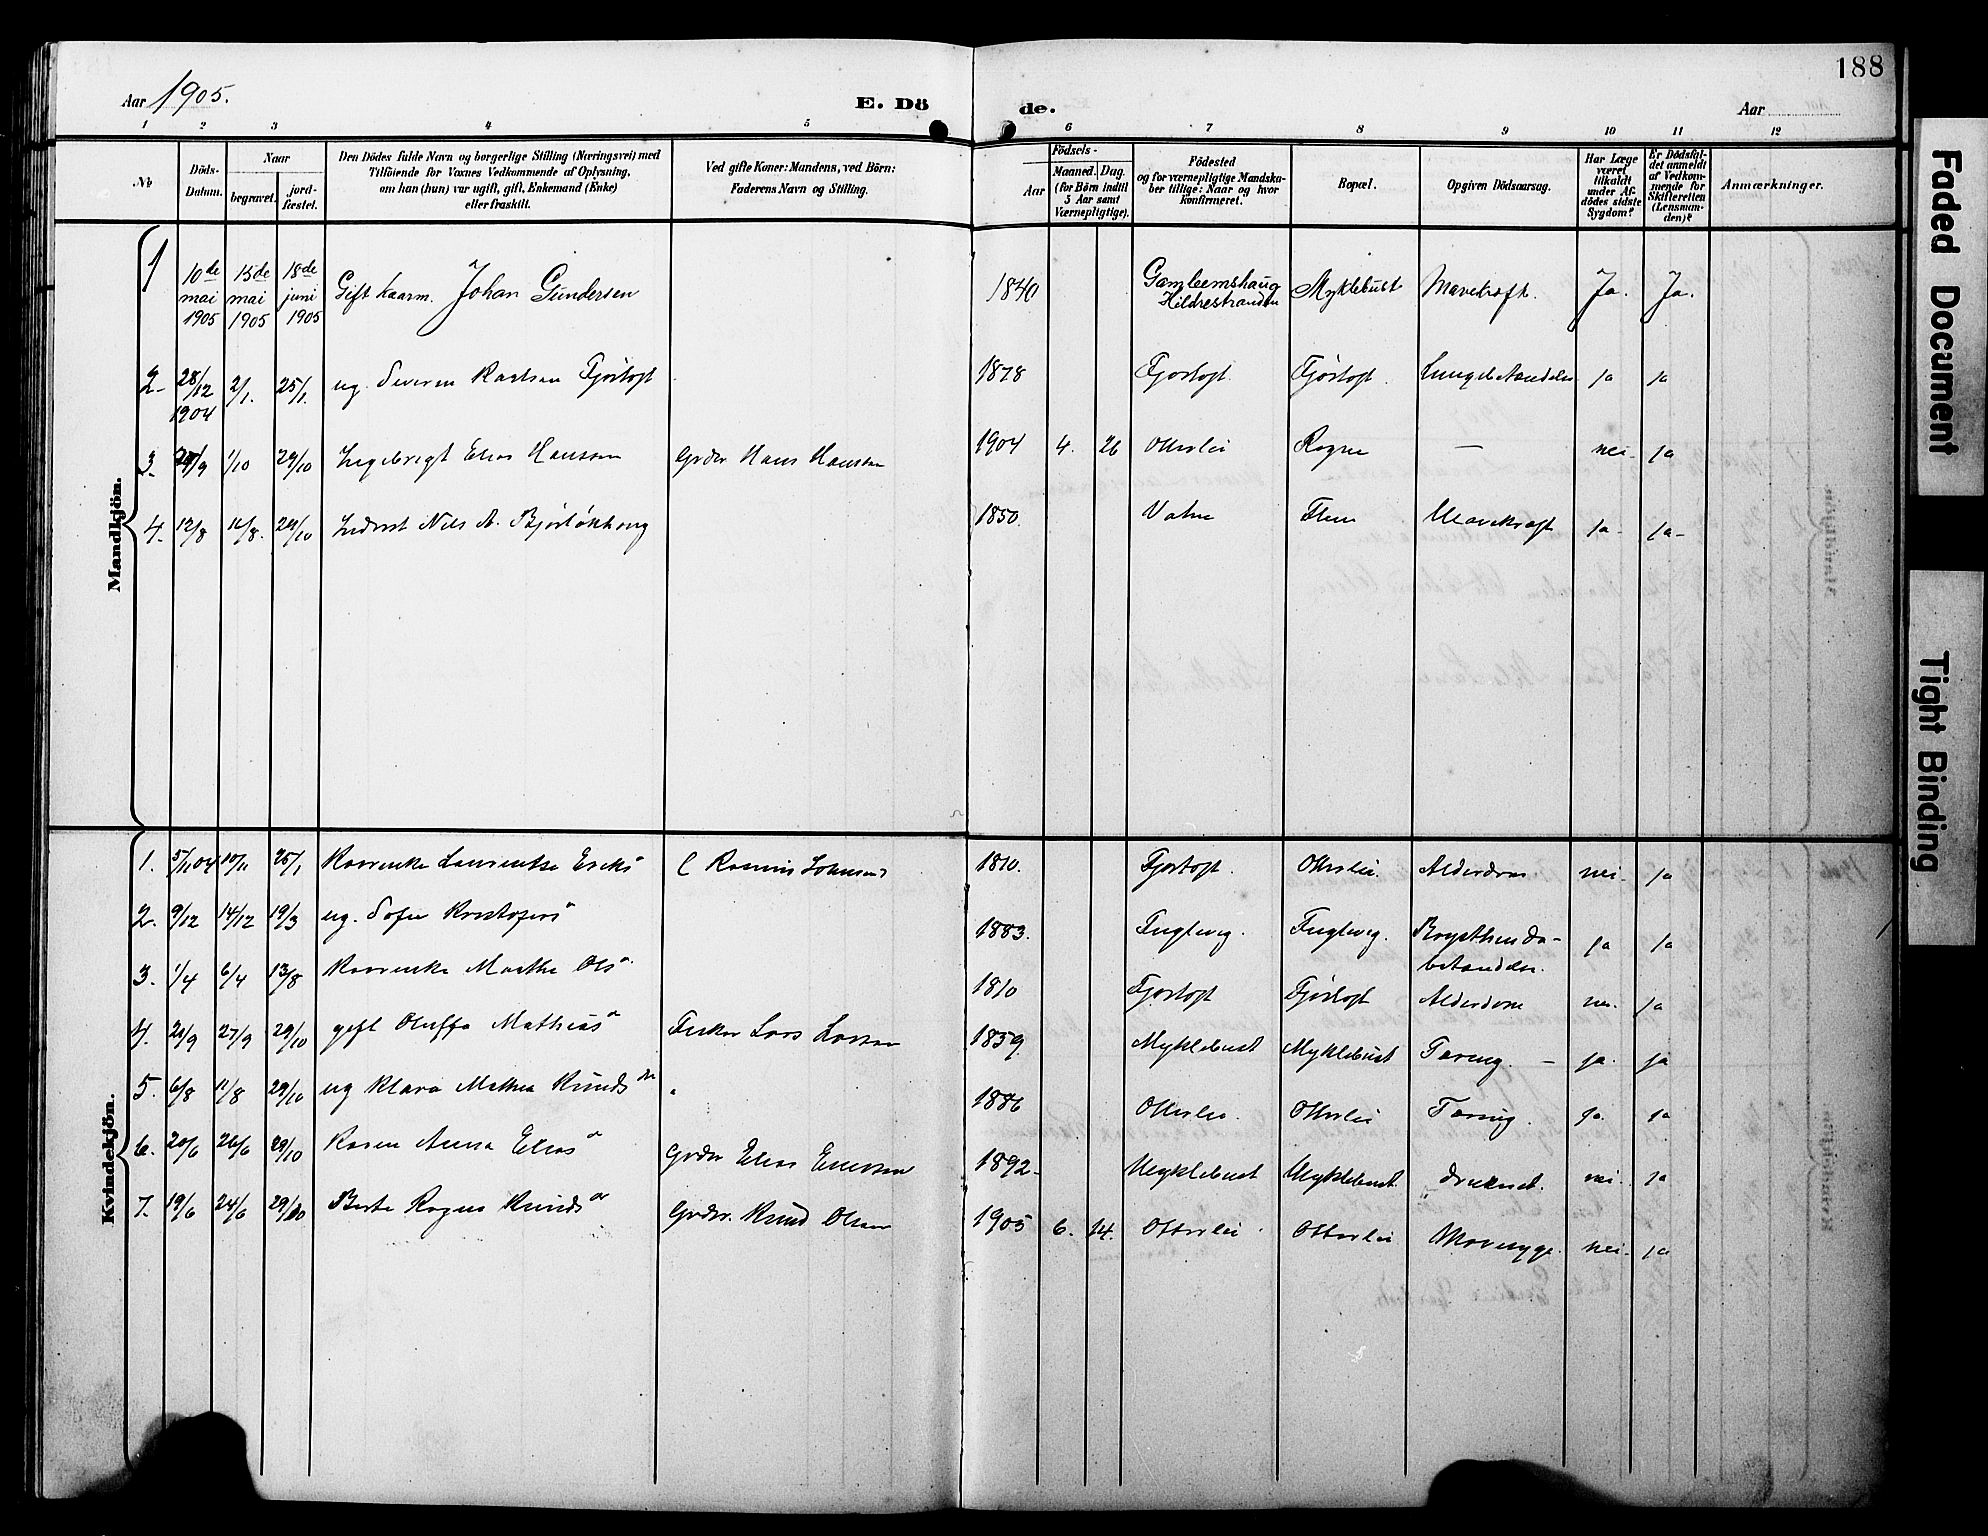 188
Aar 1905.
E. Dö
de.
Aar
1 2 3 4 5 6 7 8 9 10 11 12
No
Döds-Datum.
Naar
begravet.
jord-fæstet.
Den Dödes fulde Navn og borgerlige Stilling (Næringsvei) med
Tilföiende for Voxnes Vedkommende af Oplysning,
om han (hun) var ugift, gift, Enkemand (Enke)
eller fraskilt.
Ved gifte Koner: Mandens, ved Börn:
Faderens Navn og Stilling.
Födsels-
Aar
Maaned. Dag.
(for Börn indtil
5 Aar samt
Værnepligtige).
Födested
og for værnepligtige Mandska-
ber tillige: Naar og hvor
konfirmeret.
Bopæl.
Opgiven Dödsaarsag.
Har Læge
været
tilkaldt
under Af-
dödes sidste
Sygdom?
Er Dödsfal-
det anmeldt
af Vedkom-
mende for
Skifteretten
(Lensman-
den)?
Anmærkninger.
Mandkjön.
1 10de mai 1905 15de mai 1905 18de juni 1905 Gift kaarm. Johan Gundersen 1840 Gamlemshaug Hildrestranden Myklebust Mavekræft. Ja. Ja.
2- 28/12 1904 2/1. 25/1. ug. Severin Karlsen Fjörtoft 1878 Fjortoft. Fjørtoft. Lungebetændelse ja ja
3. /9 1/10 29/10 Ingebrigt Elias Hansen Grdbr Hans Hansen 1904 4. 26 Otterlei Rogne — nei- ja
4. 12/8 /8. 29/10 Inderst Nils A. 1850. Vatne Flem Mavekræft ja- ja-
Kvindekjön.
1. 5/11 04 10/11 25/1 Kaarenke Laurentze Eriks ( Rasmus Johnsen) 1810. Fjortoft. Otterlei. Alderdom nei- ja
2. 9/12 14/12 19/3 ug. Sofie Kristofers 1883. Fuglevig. Fuglevig. Brysthinde-betændelse. ja ja
3. 1/4 6/4 13/8 Kaarenke Marthe Ols 1810 Fjortoft Fjørtoft Alderdom nei. ja
4. /9 27/9 29/10 gift Oluffa Mathias Fisker Lars Larsen 1859. Myklebust Myklebust Tæring. — ja. ja
5. 6/8 11/8 29/10 ug Klara Mathea Knuds 1886 Otterlei. Otterlei Tæring. ja. ja
6. 20/6 26/6 29/10 Karen Anna Elias Grdbr Elias 1892- Myklebust Myklebust druknet. nei- ja
7. 19/6 24/6 29/10 Berte Ragna Knuds Grdbr. Knud Olsen 1905 6. 14. Otterlei Otterlei Mavesyge. nei- ja
Faded Document
Tight Binding